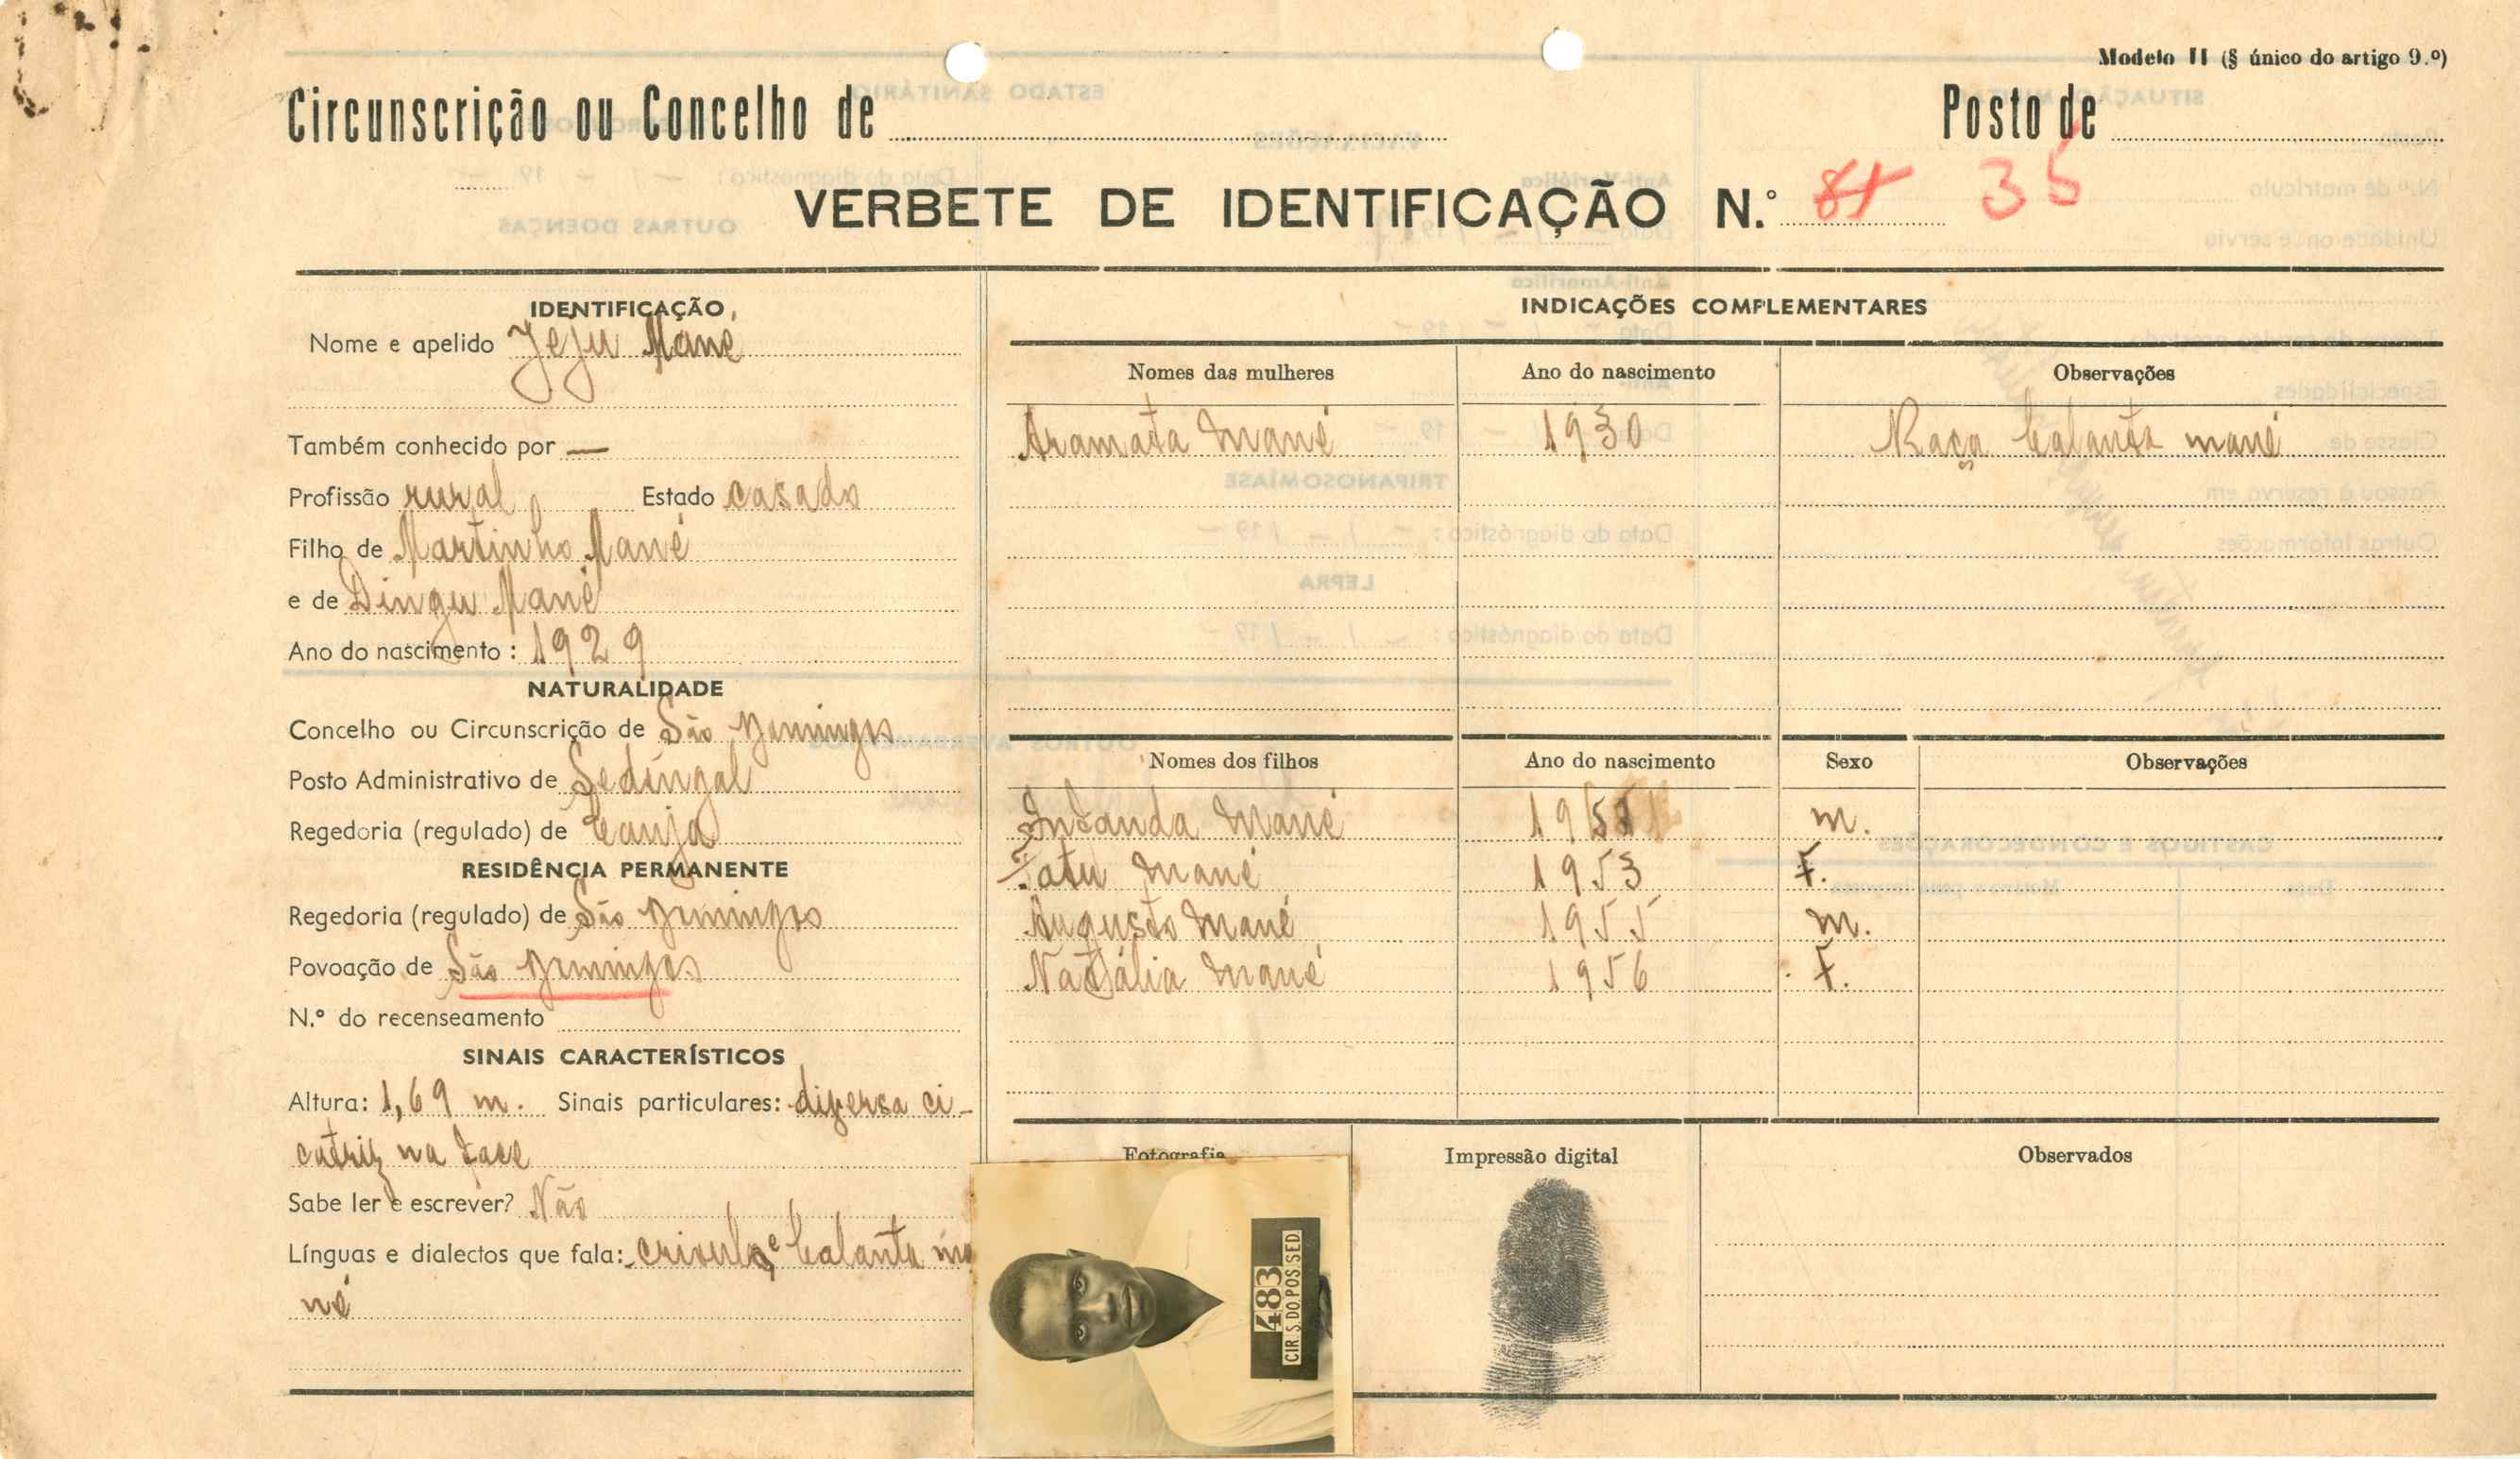 Modelo II (§ único do artigo 9.º)
Circunscrição ou Concelho de
Posto de
VERBETE DE IDENTIFICAÇÃO N.º 81 35
IDENTIFICAÇÃO
Nome e apelido Jeju Mané
Também conhecido por —
Profissão rural Estado casado
Filho de Martinho Mané
e de Dingu Mané
Ano do nascimento: 1929
NATURALIDADE
Concelho ou Circunscrição de São Domingos
Posto Administrativo de Sedingal
Regedoria (regulado) de Canja
RESIDÊNCIA PERMANENTE
Regedoria (regulado) de São Domingos
Povoação de São Domingos
N.º do recenseamento
SINAIS CARACTERÍSTICOS
Altura: 1,69 m. Sinais particulares: diversa ci-
catriz na face
Sabe ler e escrever? Não
Línguas e dialectos que fala: crioulo e balanta ma
né
INDICAÇÕES COMPLEMENTARES
Nomes das mulheres Ano do nascimento Observações
Aramata Mané 1930 Raça balanta mané
Nomes dos filhos Ano do nascimento Sexo Observações
Mané m.
Fatu Mané 1953 F.
Augusto Mané 1955 m.
Natália Mané 1956 F.
Fotografia
Impressão digital
Observados
483
CIR.S.DO.POS.SED.